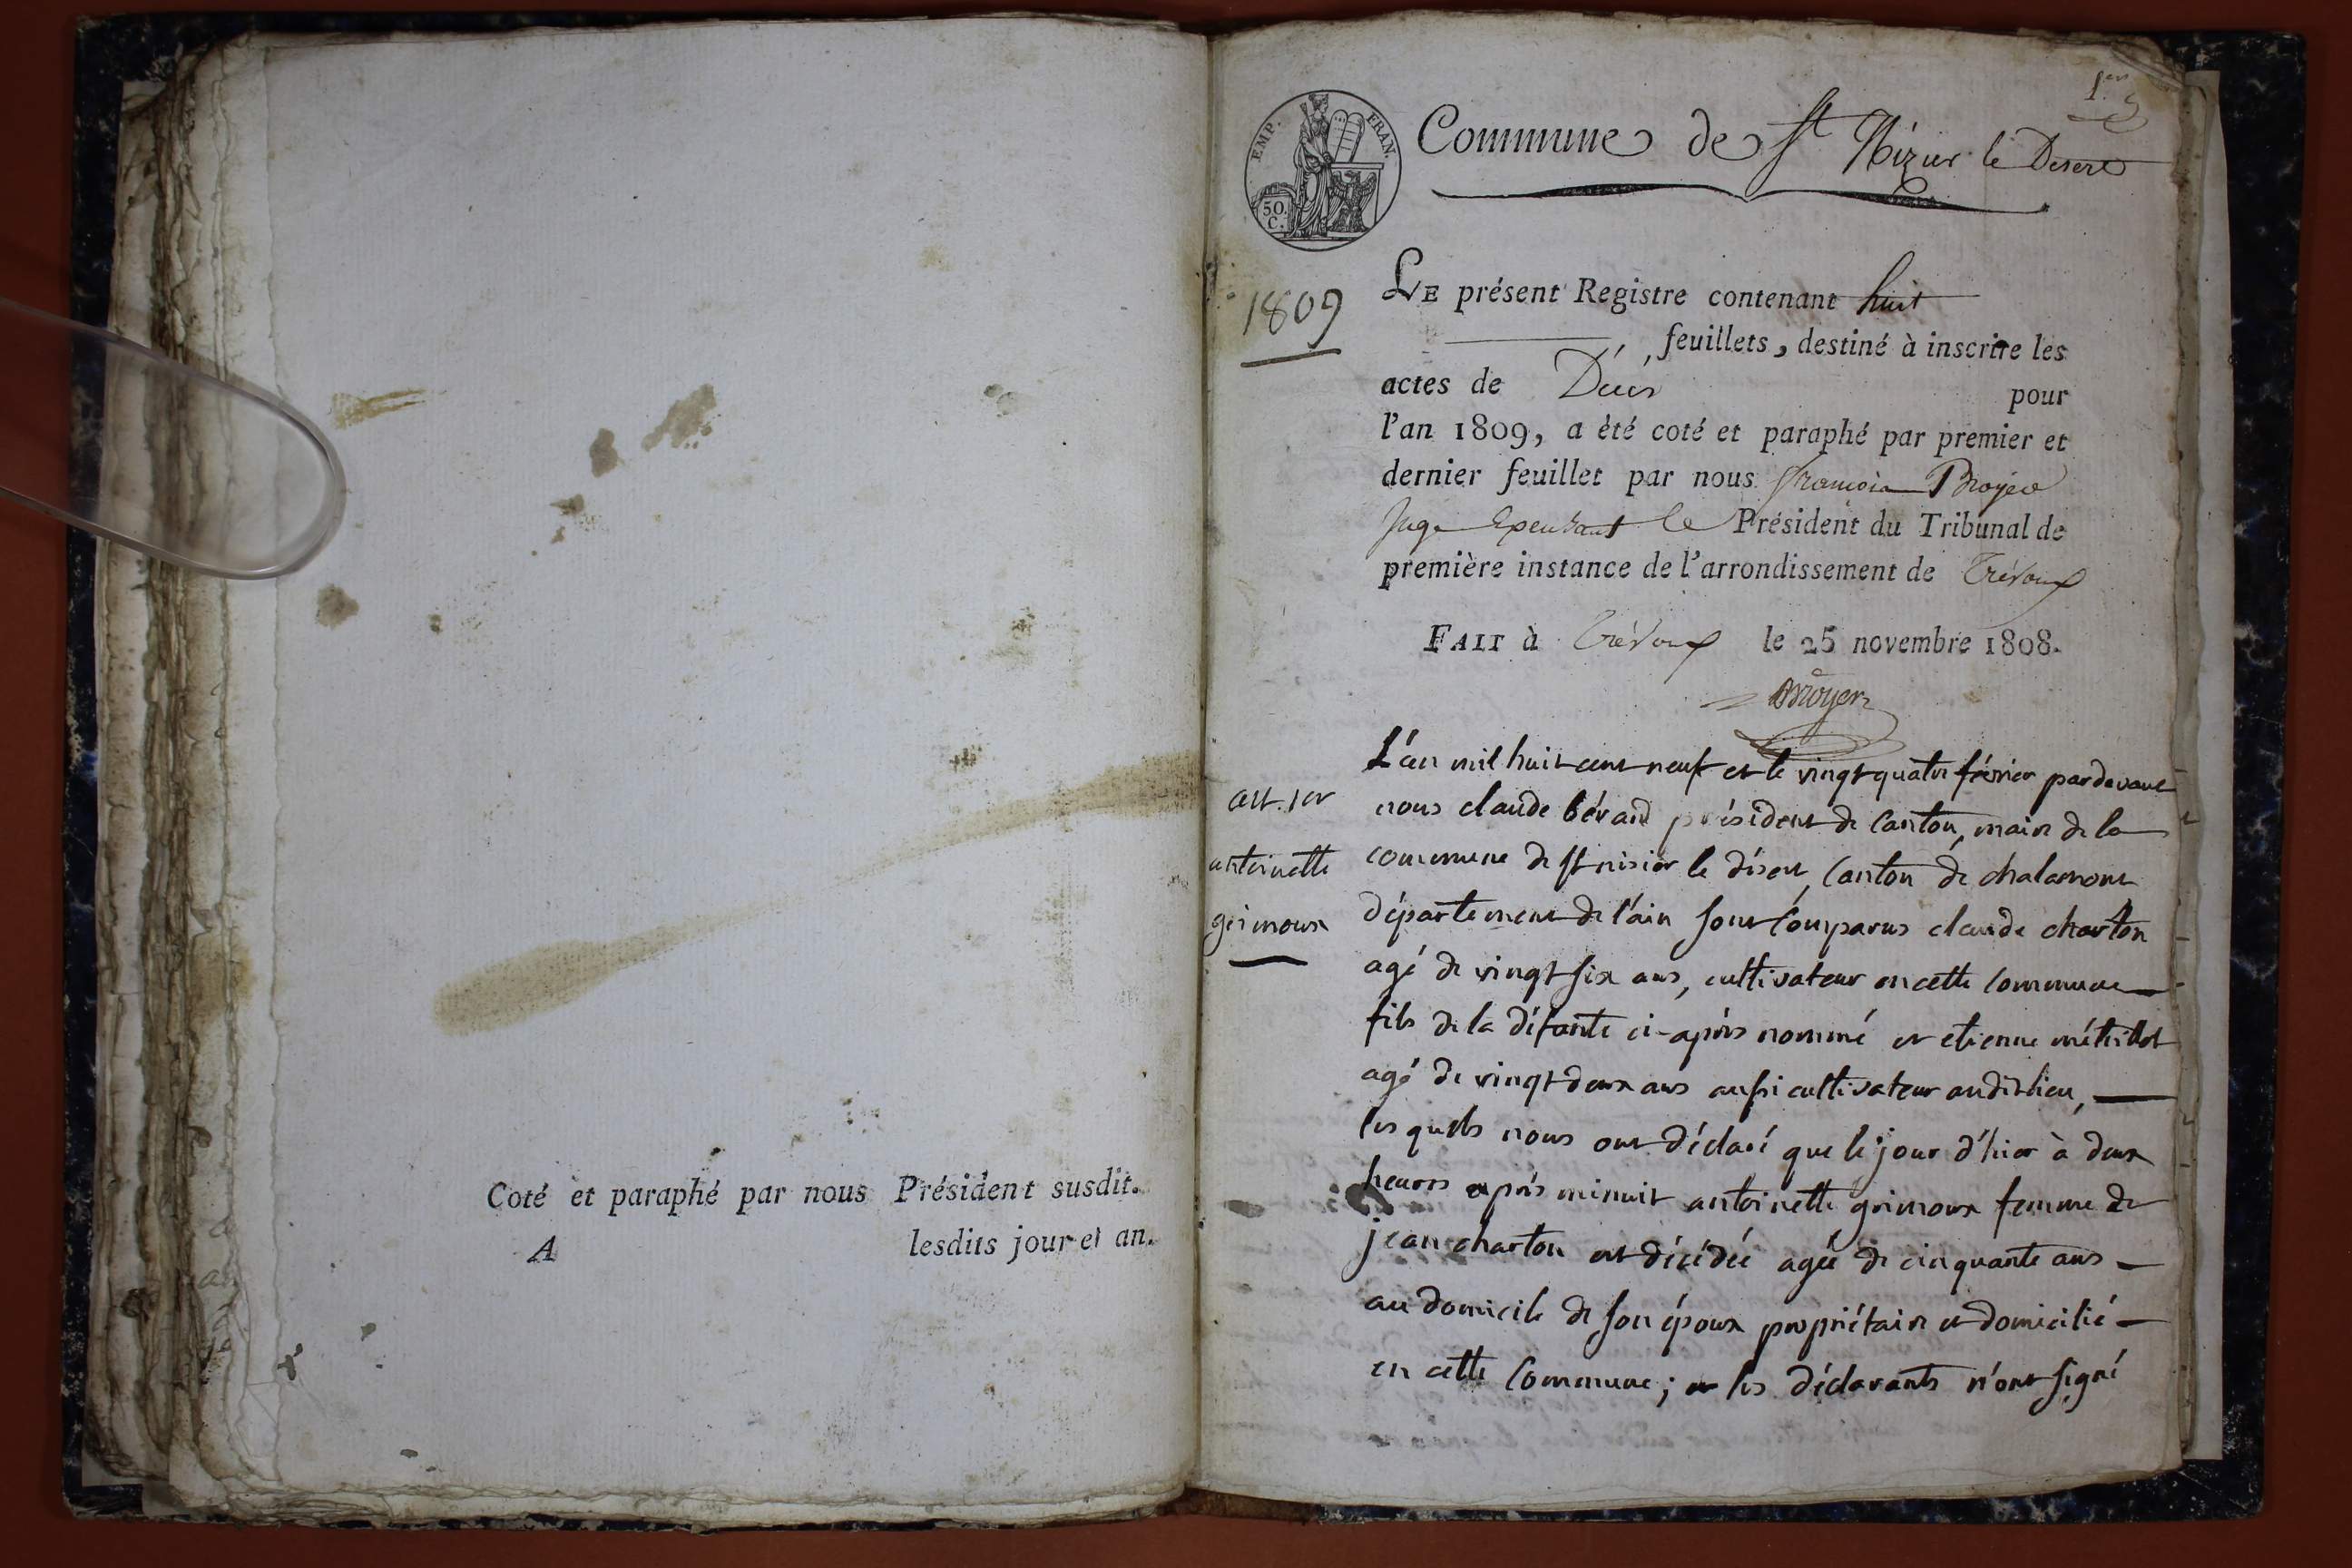 Coté et paraphé par nous Président susdit.
A lesdits jour et an.
1er
EMP. FRAN.
50. C.
Commune de St Nizier le Desert
1809
LE présent Registre contenant huit
feuillets, destiné à inscrire les
actes de Décès pour
l'an 1809, a été coté et paraphé par premier et
dernier feuillet par nous françois
Juge le Président du Tribunal de
première instance de l'arrondissement de Trévoux
FAIT à Trévoux le 25 novembre 1808.
art. 1er
antoinette
grimoux
L'an mil huit cent neuf et le vingt quatre février pardevant
nous claude bérard président de canton, maire de la
commune de st nisier le désert, canton de chalamont
département de l'ain sont comparus claude charton
agé de vingt six ans, cultivateur en cette commune
fils de la défante ci-après nommé et etienne
agé de vingt deux ans aussi cultivateur audit lieu,
les quels nous ont déclaré que le jour d'hier à deux
heures après minuit antoinette grimoux femme de
jean charton est décédée agée de cinquante ans
au domicile de son époux propriétaire et domicilié
en cette commune; et les déclarants n'ont signé